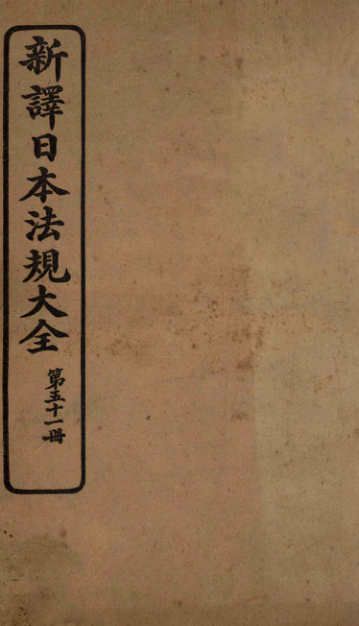 新譯日本法規大全
第五十一冊